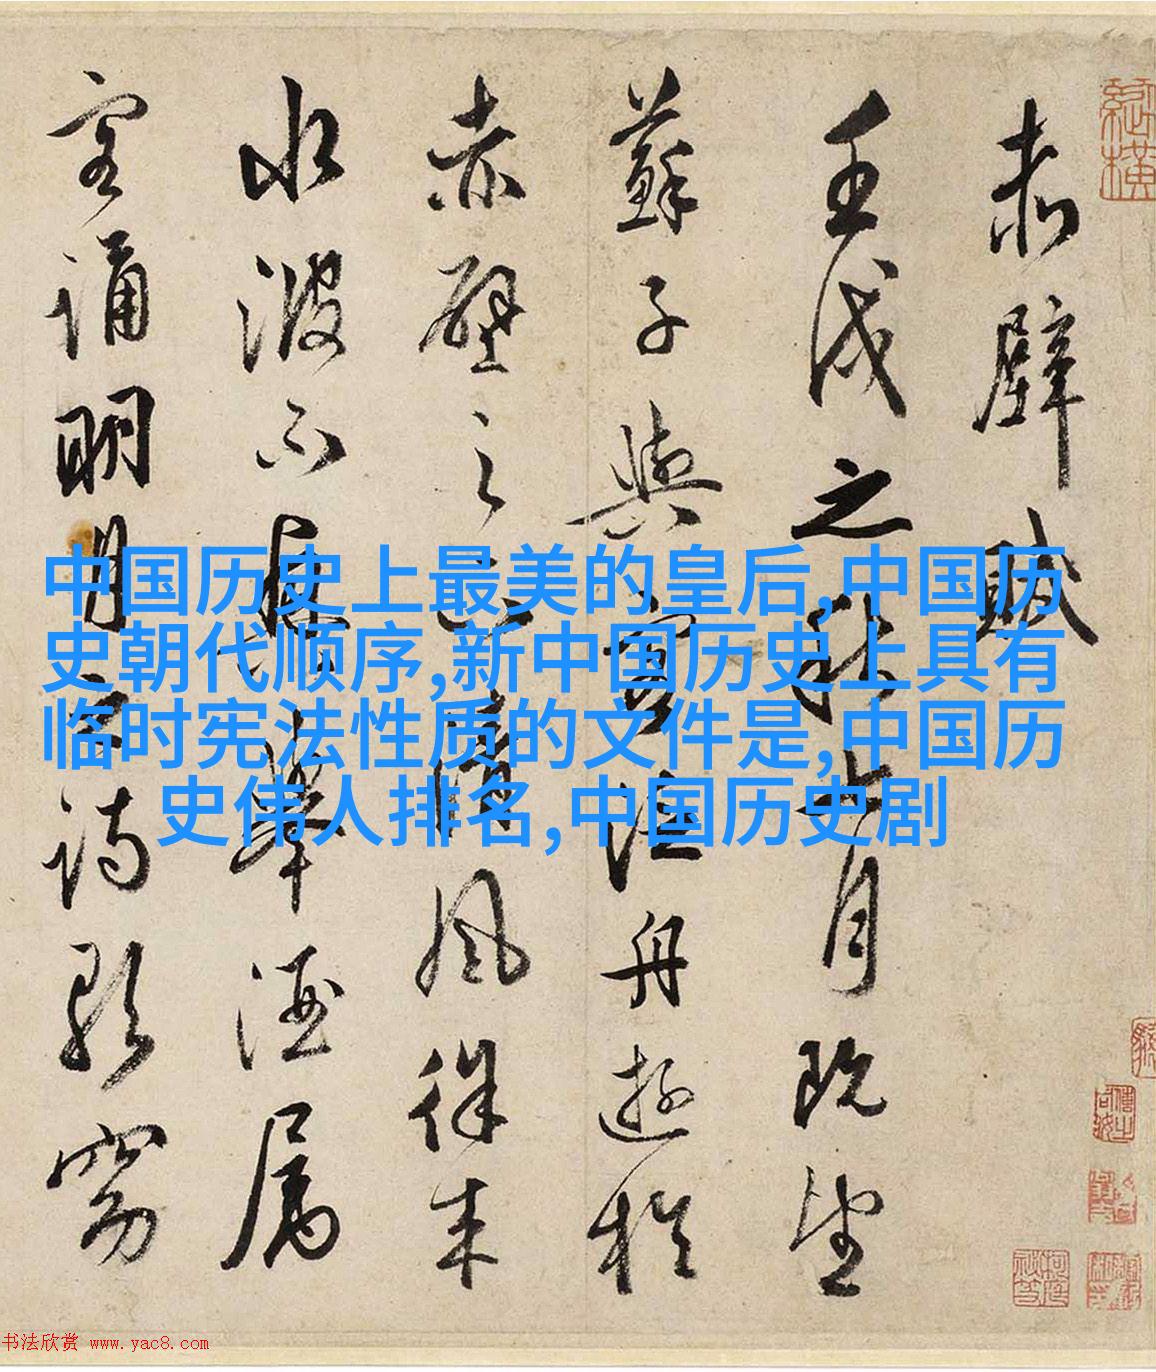 赤壁賦
壬戌之秋七月既望
蘇子與客泛舟遊於
赤壁之下清風徐来
水波不興舉酒属
客誦明月之詩歌窈
中国历史上最美的皇后,中国历
史朝代顺序,新中国历史上具有
临时宪法性质的文件是,中国历
史伟人排名,中国历史剧
书法欣赏 www.yac8.com